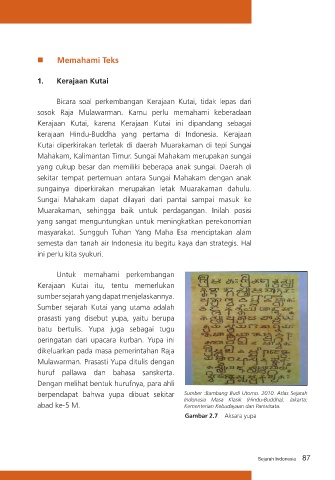 ■ Memahami Teks
1. Kerajaan Kutai
Bicara soal perkembangan Kerajaan Kutai, tidak lepas dari
sosok Raja Mulawarman. Kamu perlu memahami keberadaan
Kerajaan Kutai, karena Kerajaan Kutai ini dipandang sebagai
kerajaan Hindu-Buddha yang pertama di Indonesia. Kerajaan
Kutai diperkirakan terletak di daerah Muarakaman di tepi Sungai
Mahakam, Kalimantan Timur. Sungai Mahakam merupakan sungai
yang cukup besar dan memiliki beberapa anak sungai. Daerah di
sekitar tempat pertemuan antara Sungai Mahakam dengan anak
sungainya diperkirakan merupakan letak Muarakaman dahulu.
Sungai Mahakam dapat dilayari dari pantai sampai masuk ke
Muarakaman, sehingga baik untuk perdagangan. Inilah posisi
yang sangat menguntungkan untuk meningkatkan perekonomian
masyarakat. Sungguh Tuhan Yang Maha Esa menciptakan alam
semesta dan tanah air Indonesia itu begitu kaya dan strategis. Hal
ini perlu kita syukuri.
Untuk memahami perkembangan
Kerajaan Kutai itu, tentu memerlukan
sumber sejarah yang dapat menjelaskannya.
Sumber sejarah Kutai yang utama adalah
prasasti yang disebut yupa, yaitu berupa
batu bertulis. Yupa juga sebagai tugu
peringatan dari upacara kurban. Yupa ini
dikeluarkan pada masa pemerintahan Raja
Mulawarman. Prasasti Yupa ditulis dengan
huruf pallawa dan bahasa sanskerta.
Dengan melihat bentuk hurufnya, para ahli
berpendapat bahwa yupa dibuat sekitar
abad ke-5 M.
Sumber :Bambang Budi Utomo. 2010. Atlas Sejarah
Indonesia Masa Klasik (Hindu-Buddha). Jakarta:
Kementerian Kebudayaan dan Pariwisata.
Gambar 2.7 Aksara yupa
Sejarah Indonesia 87